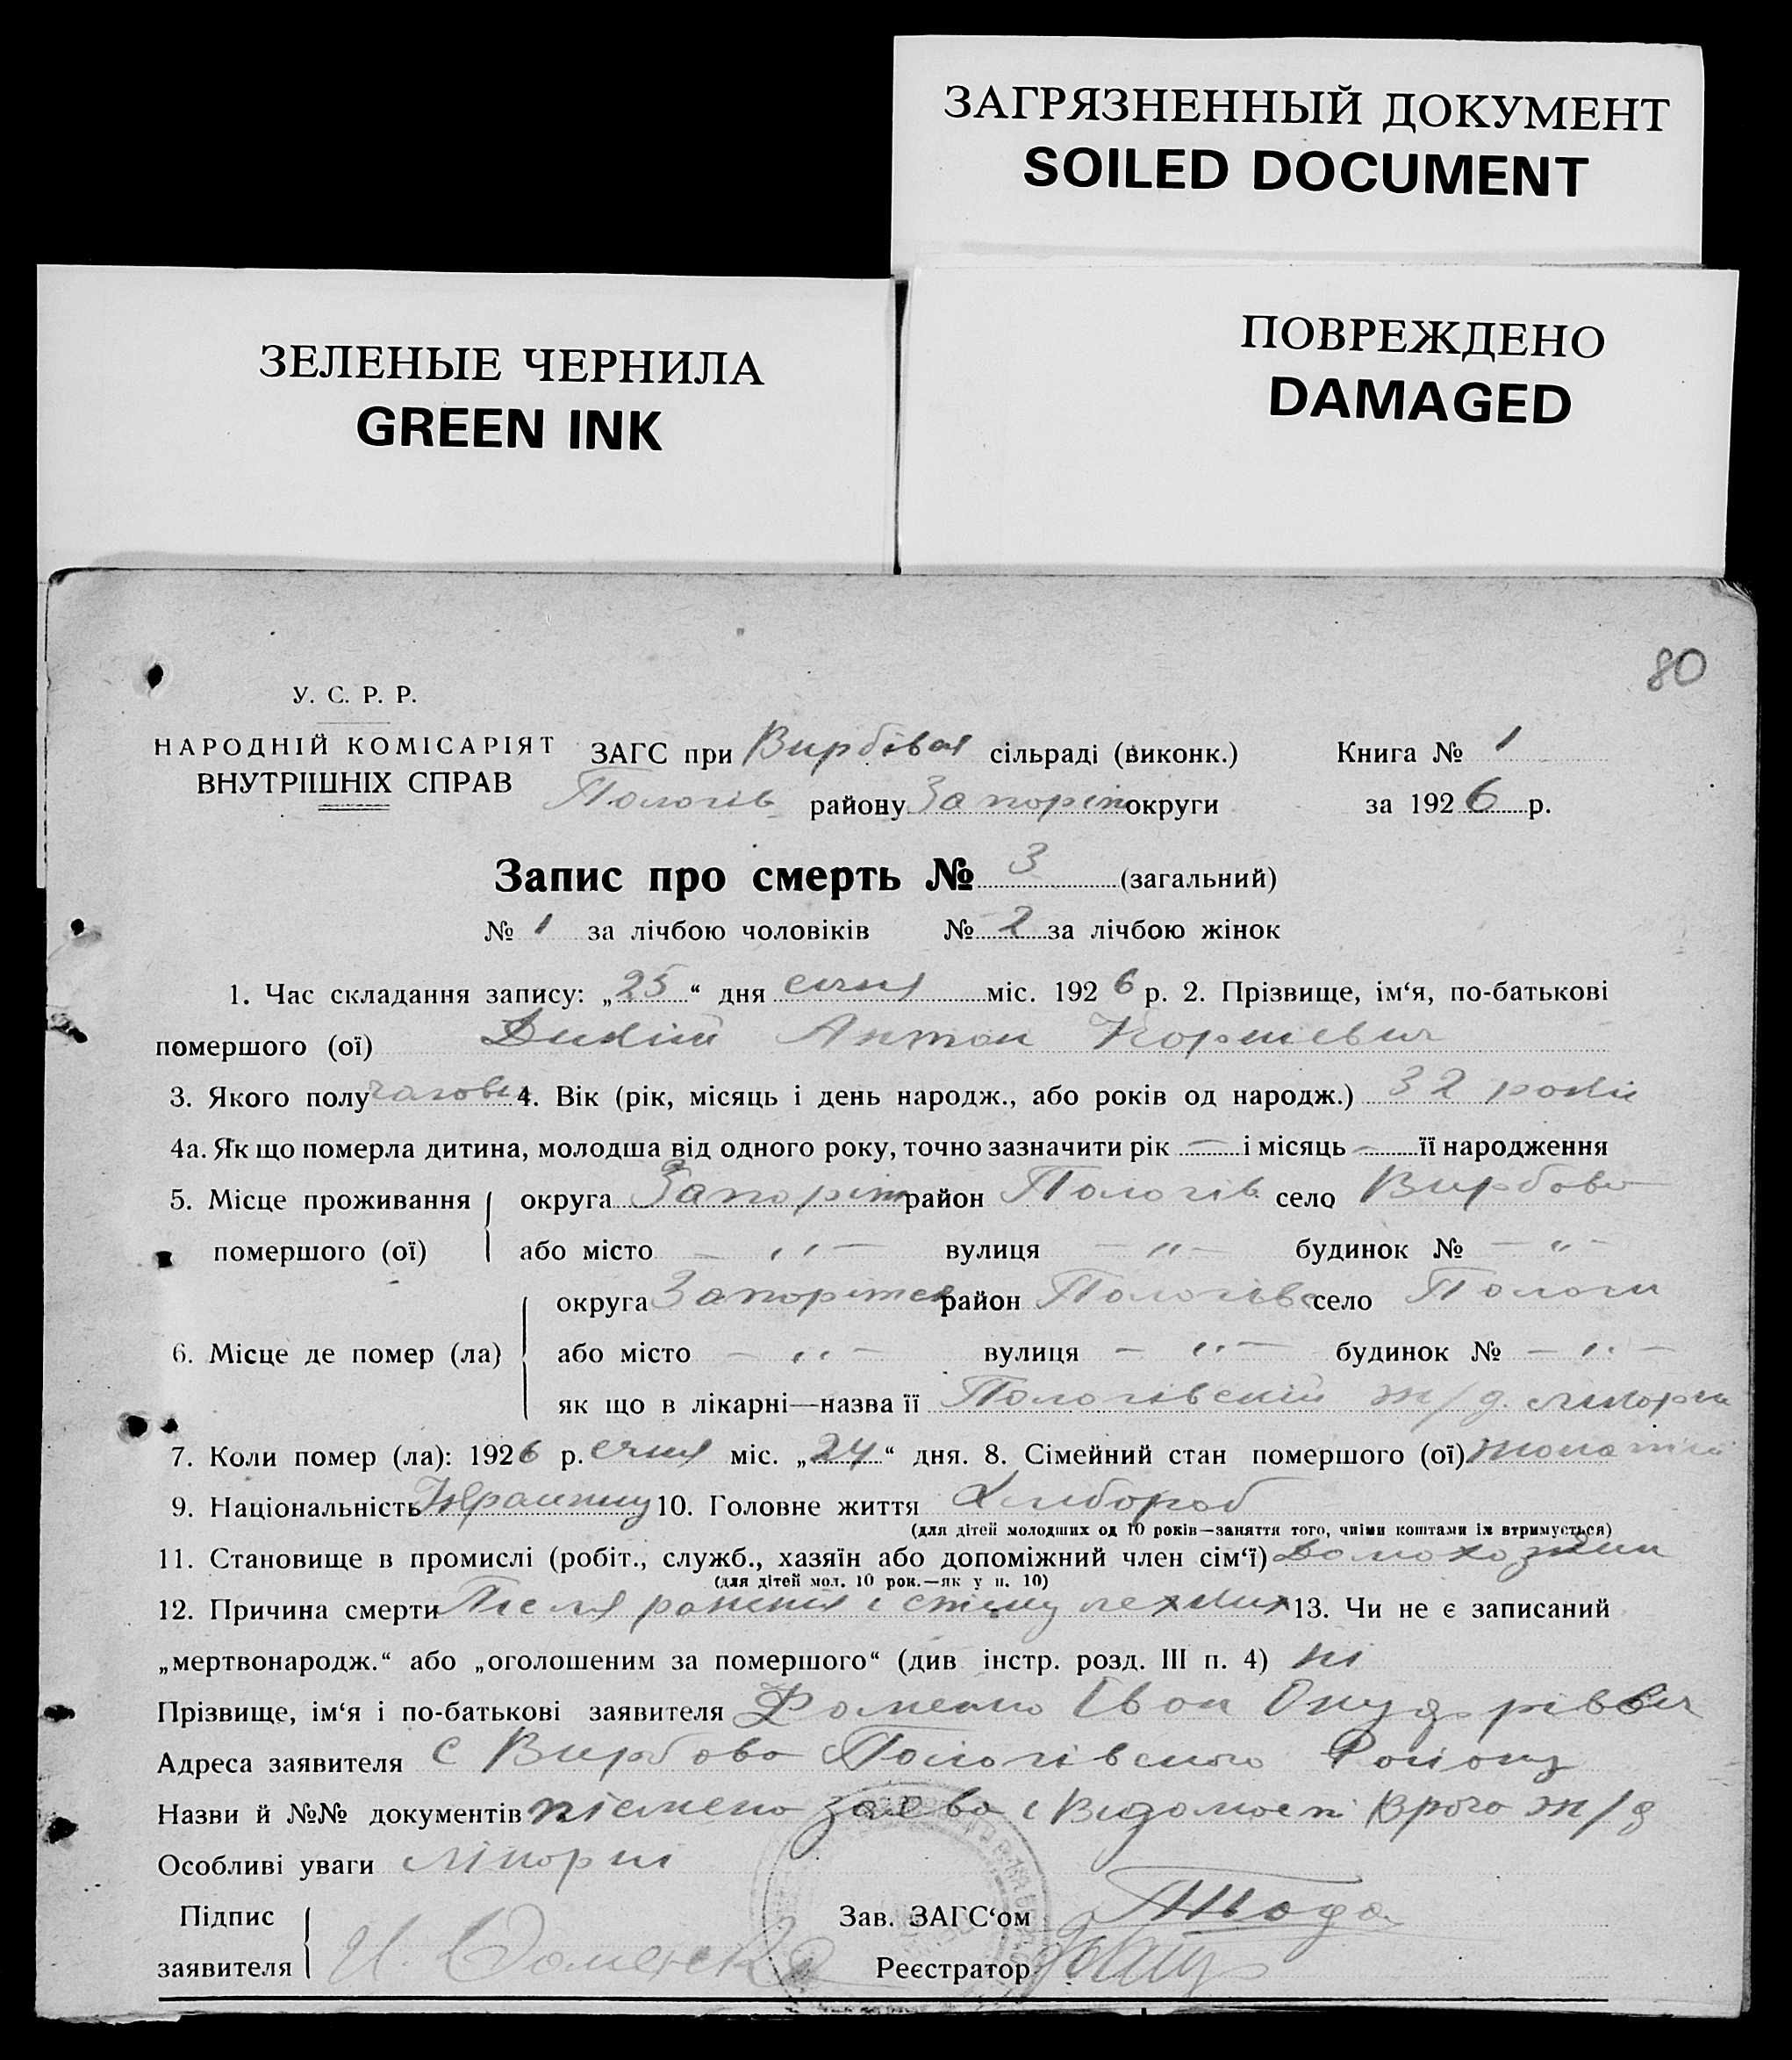 ЗАГРЯЗНЕННЫЙ ДОКУМЕНТ
SOILED DOCUMENT
ЗЕЛЕНЫЕ ЧЕРНИЛА
GREEN INK
ПОВРЕЖДЕНО
DAMAGED
80
У. С. Р. Р.
НАРОДНІЙ КОМІСАРІЯТ
ВНУТРІШНІХ СПРАВ
ЗАГС при сільраді (виконк.) Книга № 1
Пологів району Запоріж округи за 1926 р.
Запис про смерть № 3 (загальний)
№ 1 за лічбою чоловіків № 2 за лічбою жінок
1. Час складання запису: „25“ дня січня міс. 1926 р. 2. Прізвище, ім‘я, по-батькові
помершого (ої) Антон
3. Якого полу 4. Вік (рік, місяць і день народж., або років од народж.) 32 роки
4а. Як що померла дитина, молодша від одного року, точно зазначити рік — і місяць — її народження
5. Місце проживання помершого (ої) округа район Пологів село Вирбово
або місто — „ — вулиця — „ — будинок № — „ —
6. Місце де помер (ла) округа район село Пологи
або місто — „ — вулиця — „ — будинок № — „ —
як що в лікарні—назва її Пологівській ж/д.
7. Коли помер (ла): 1926 р. січня міс. „24“ дня. 8. Сімейний стан помершого (ої)
9. Національність 10. Головне життя Хлибороб
(для дітей молодших од 10 років—заняття того, чиїми коштами їх втримується)
11. Становище в промислі (робіт., служб., хазяїн або допоміжний член сім‘ї)
(для дітей мол. 10 рок.—як у п. 10)
12. Причина смерти 13. Чи не є записаний
„мертвонародж.“ або „оголошеним за помершого“ (див інстр. розд. III п. 4) ні
Прізвище, ім‘я і по-батькові заявителя Фоменко Іван
Адреса заявителя с Вирбово Пологівского Району
Назви й №№ документів заява ж/д
Особливі уваги
Підпис заявителя И. Фоменко
Зав. ЗАГС‘ом
Реєстратор